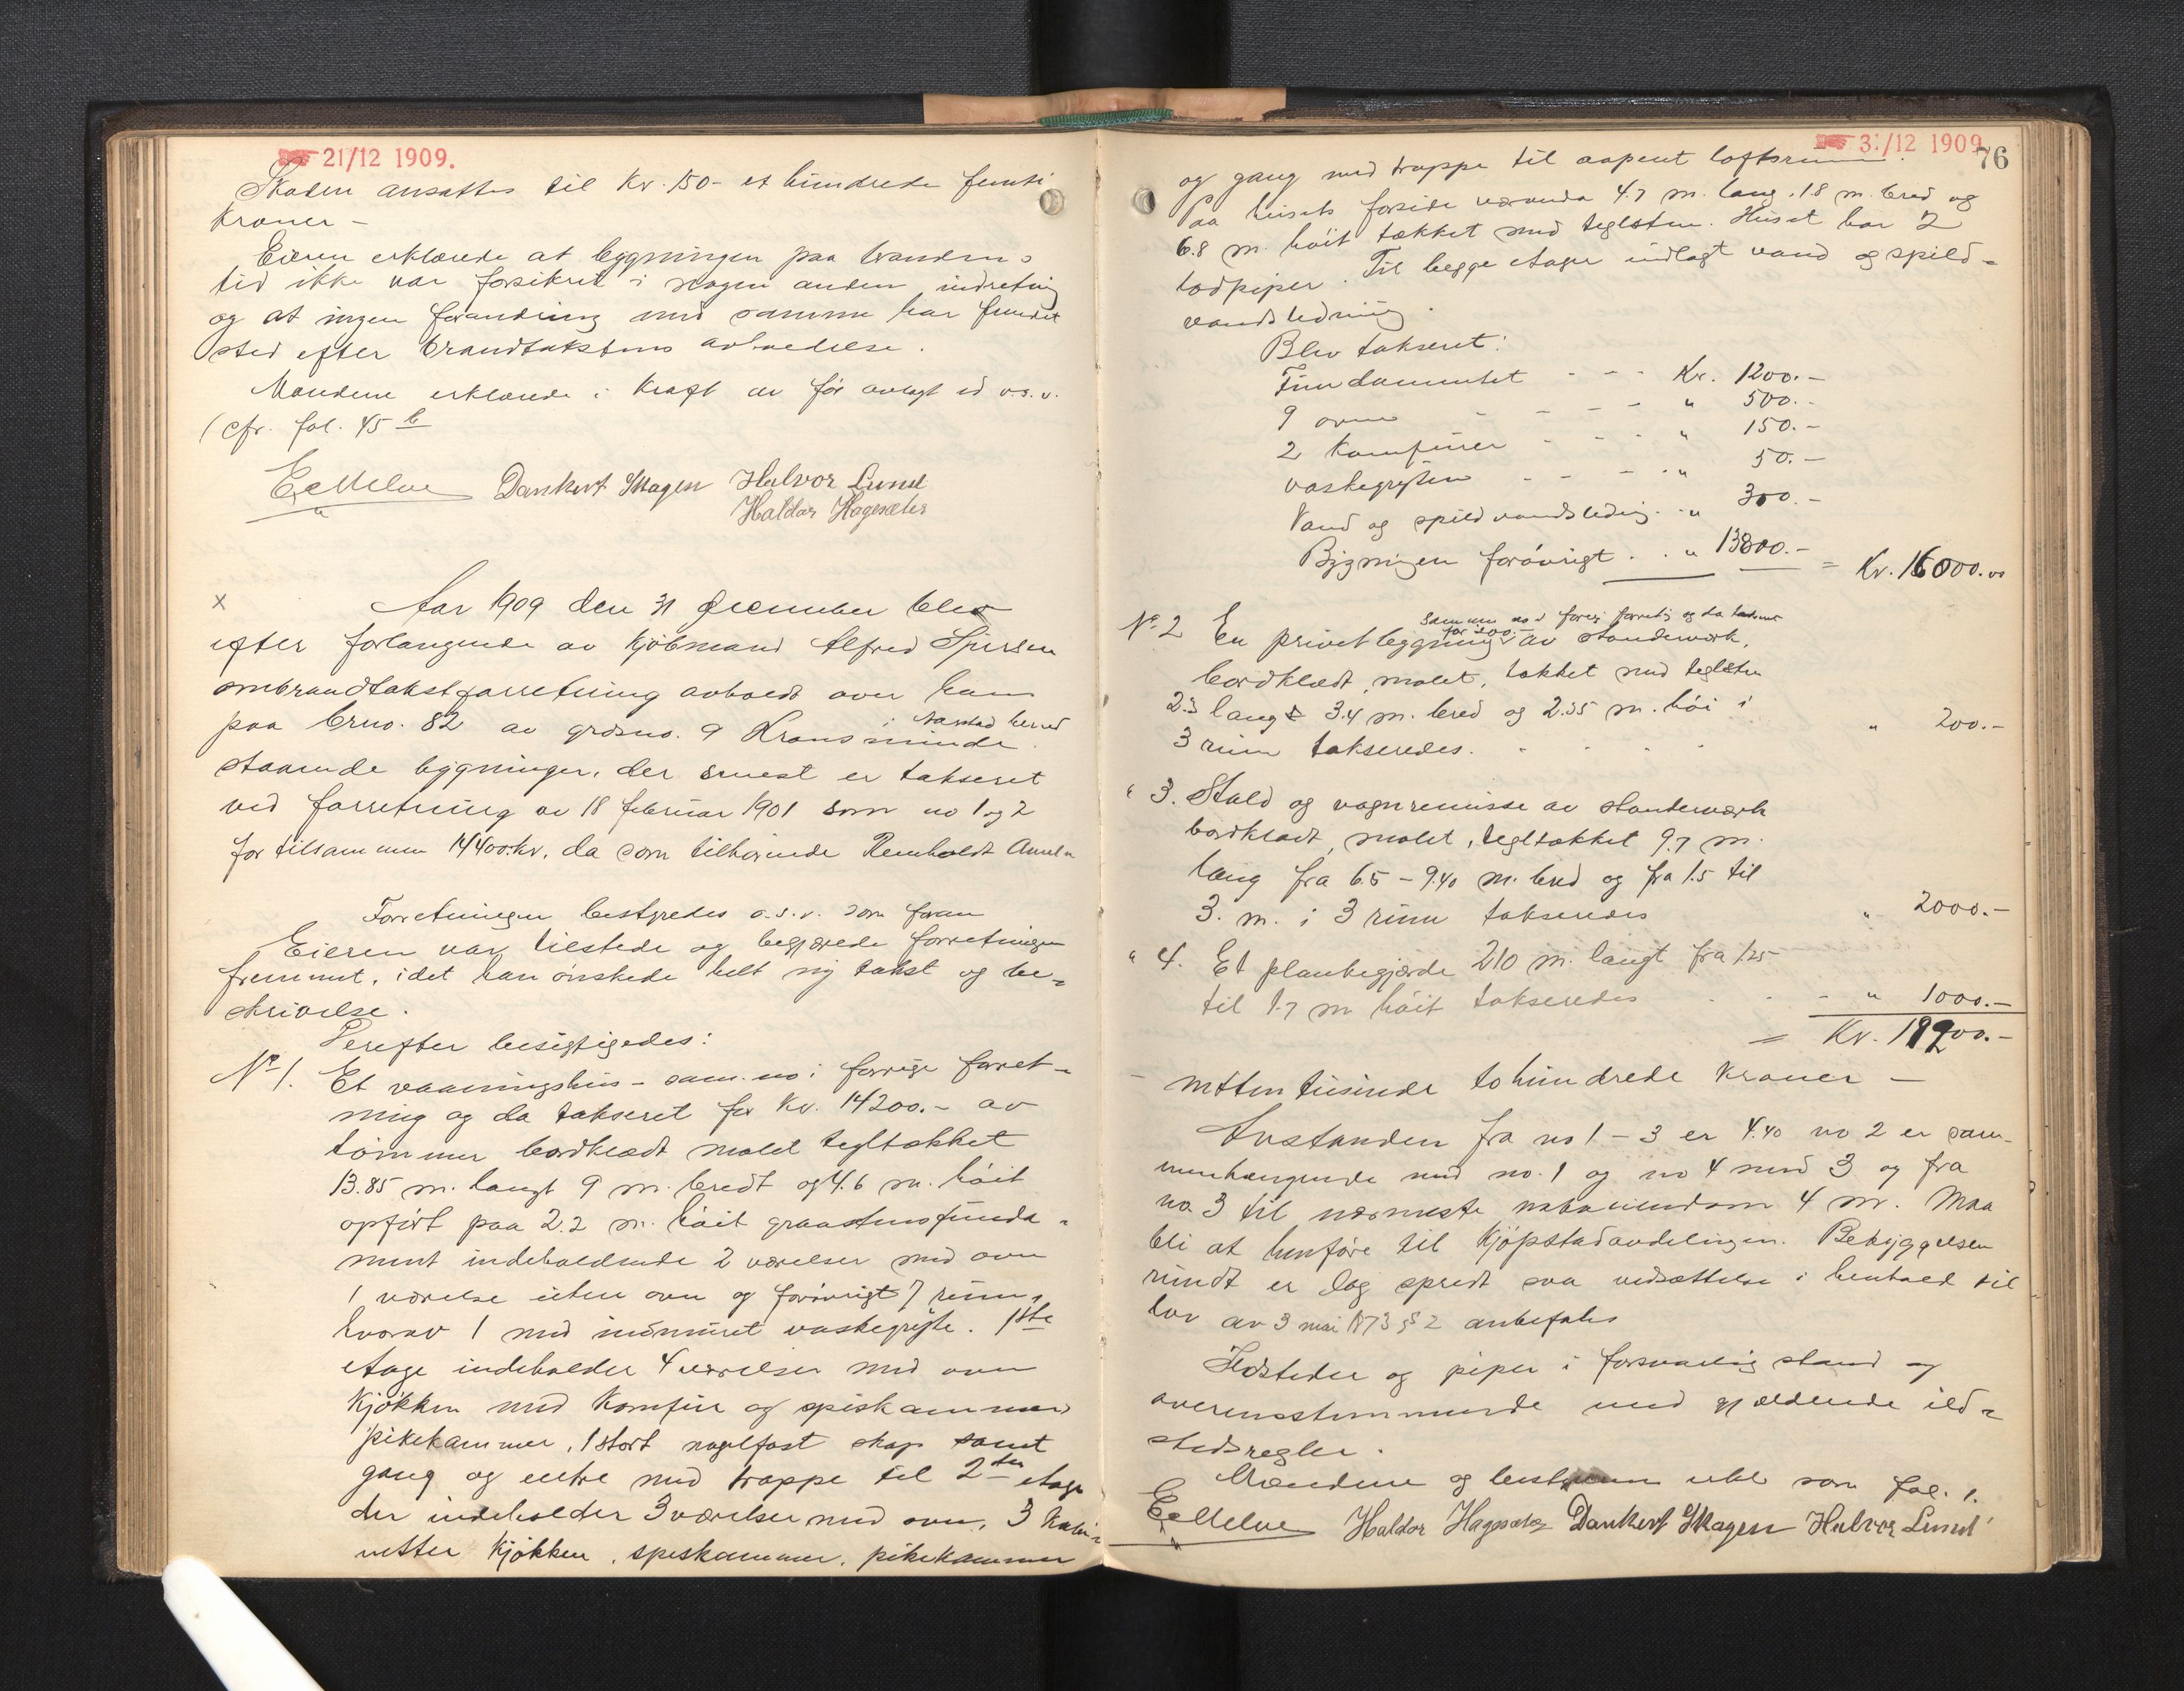 21/12 1909.
Skaden ansattes til Kr. 150- et hundrede femti
Kroner -
Eieren erklærede at bygningen paa brandens
tid ikke var forsikret i nogen anden indretning
og at ingen forandring med samme har fundet
sted efter brandtakstens avholdelse.
Mændene erklærede i kraft av før avlagt ed o.s.v.
(cfr. fol. 45 b
E Melve Dankert Skagen Halvor Lund
Haldor Hagesæter
x Aar 1909 den 31 december blev
efter forlangende av kjøbmand Alfred
ombrandtakstforretning avholdt over hans
paa brno. 82 av grdsno. 9 Kransminde i herred
staaende bygninger, der senest er takseret
ved forretning av 18 februar 1901 som no 1 og 2
for tilsammen 14400 kr, da som tilhørende Remholdt
Forretningen bestyredes o.s.v. som foran
Eieren var tilstede og begjærede forretningen
fremmet, idet han ønskede helt ny takst og be-
skrivelse.
Derefter besigtigedes:
No 1. Et vaaningshus - sam. no i forrige forret-
ning og da takseret for kr. 14200.- av
tømmer bordklædt malet tegltækket
13.85 m. langt 9 m. bredt og 4.6 m. høit
opført paa 2.2 m. høit graastensfunda-
ment indeholdende 2 værelser med ovn
1 værelse uten ovn og forøvrigt 7 rum,
hvorav 1 med indmuret vaskegryte. 1ste
etage indeholder 4 værelser med ovn
Kjøkken med Komfur og spiskammer
pikekammer, 1 stort nagelfast skap samt
gang og entre med trappe til 2den etage
der indeholder 3 værelser med ovn, 3 kabi-
netter kjøkken, speskammer, pikekammer
31/12 1909
76
og gang med trappe til aapent loftsrum.
Paa husets forside veranda 4.7 m. lang, 1.8 m. bred og
6.8 m. høit tækket med teglsten. Huset har 2
lødpiper. Til begge etager indlagt vand og spild-
vandsledning.
Blev takseret:
Fundamentet - - - Kr. 1200.-
9 ovne - - - - " 500.-
2 Komfurer - - - " 150.-
vaskegryten - - - " 50.-
Vand og spildvandsledning - " 300.-
Bygningen forøvrigt . . " 13800.- = Kr. 16000.00
samme no i forrige forretn. og da takseret
for 200.-
No 2 En privetbygning av standerværk,
bordklædt, malet, tækket med teglsten
2.3 lang 3.4 m. bred og 2.35 m. høi i
3 rum takseredes. - - - - " 200.-
" 3. Stald og vognremisse av standerværk
bordklædt, malet, tegltækket 9.7 m.
lang fra 6.5 - 9.40 m. bred og fra 1.5 til
3. m. i 3 rum takseredes " 2000.-
" 4. Et plankegjærde 210 m. langt fra 1.25
til 1.7 m høit takseredes - - - " 1000.-
= Kr. 19200.-
- nitten tusinde tohundrede Kroner -
Avstanden fra no 1 - 3 er 4.40 no 2 er sam-
menhængende med no. 1 og no 4 med 3 og fra
no 3 til nærmeste naboeiendom 4 m. Maa
bli at henføre til Kjøpstadavdelingen. Bebyggelsen
rundt er dog spredt saa nedsættelse i henhold til
lov av 3 mai 1873 § 2 anbefales
Ildsteder og piper i forsvarlig stand og
overensstemmende med gjældende ild-
stedsregler.
Mændene og bestyreren erkl. som fol. 1.
E Melve Haldor Hagesæter Dankert Skagen Halvor Lund